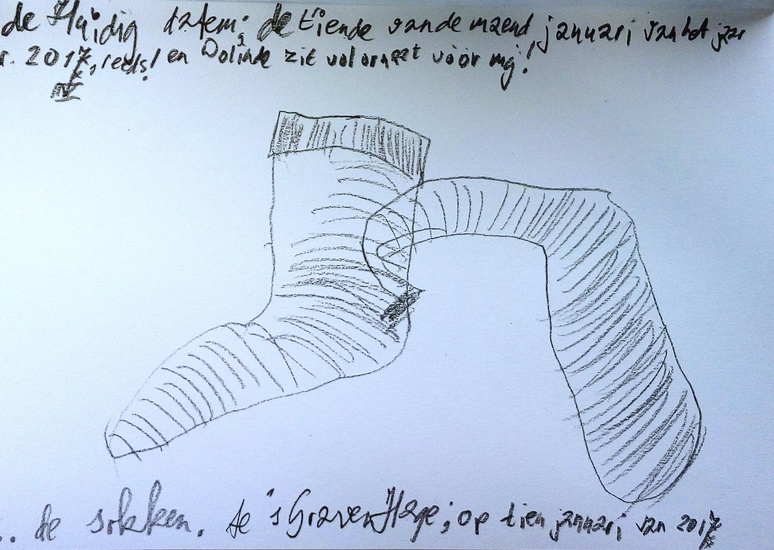 de Huidig datem; de tiende van de maend januari van het jaer
r. 2017, reeds! en Dolinde zit vol ornaat vóór mij!
.. de sokken. te 's GravenHage; op tien januari van 2017